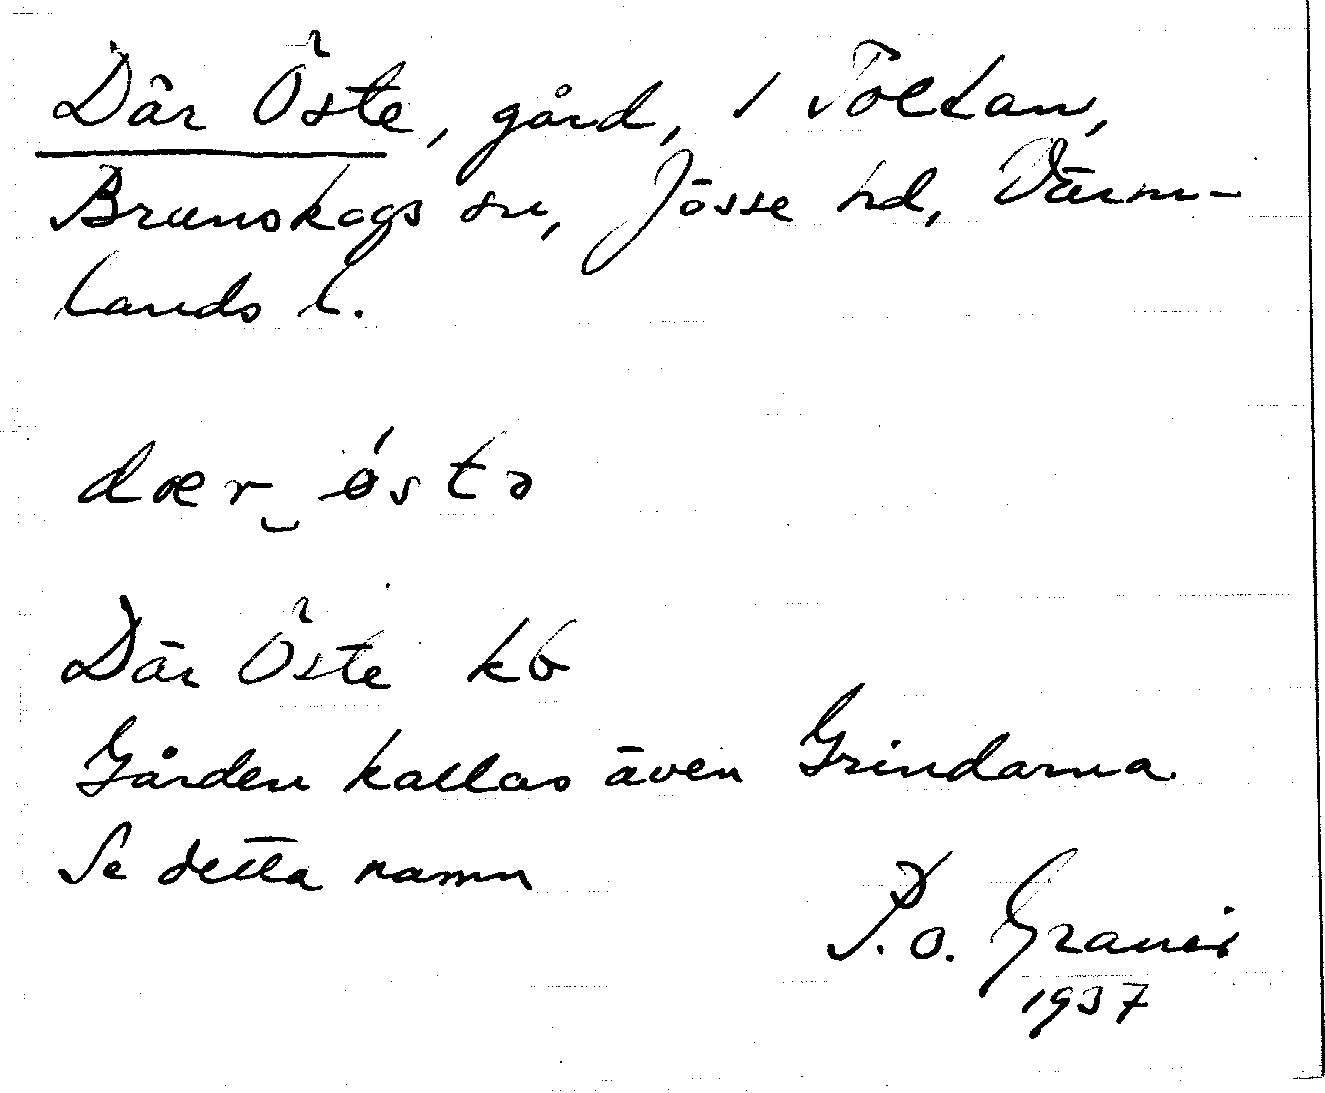 Där Öste, gård, i Tolltan,
Brunskogs sn, Jösse hd, Värm-
lands l.
dær‿östə
Där Öste kb
Gården kallas även Grindarna.
Se detta namn
P.O.
1937